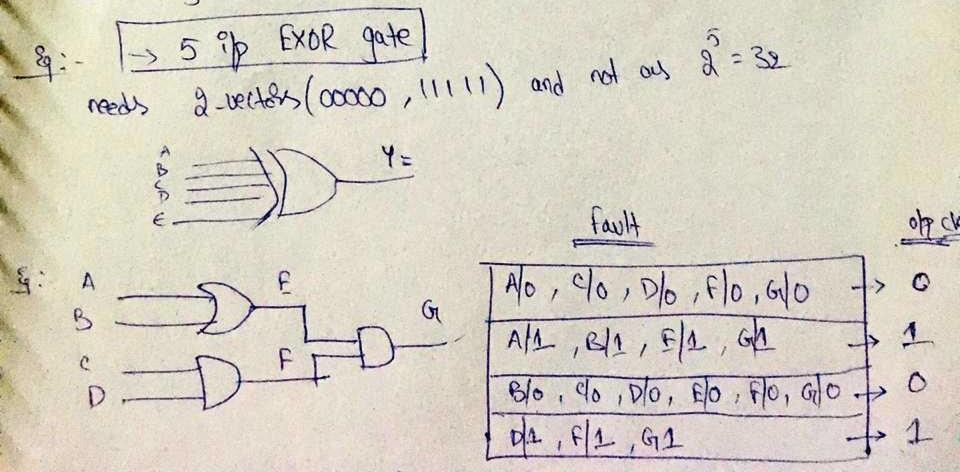 Eg:- → 5 i/p EXOR gate
needs 2-vectors(00000, 11111) and not as 2^5 = 32
A
B
C
D
E
Y =
Fault
o/p
Eg:
A
B
C
D
E
F
G
A/0, C/0, D/0, F/0, G/0 → 0
A/1, B/1, E/1, G/1 → 1
B/0, C/0, D/0, E/0, F/0, G/0 → 0
D/1, F/1, G1 → 1